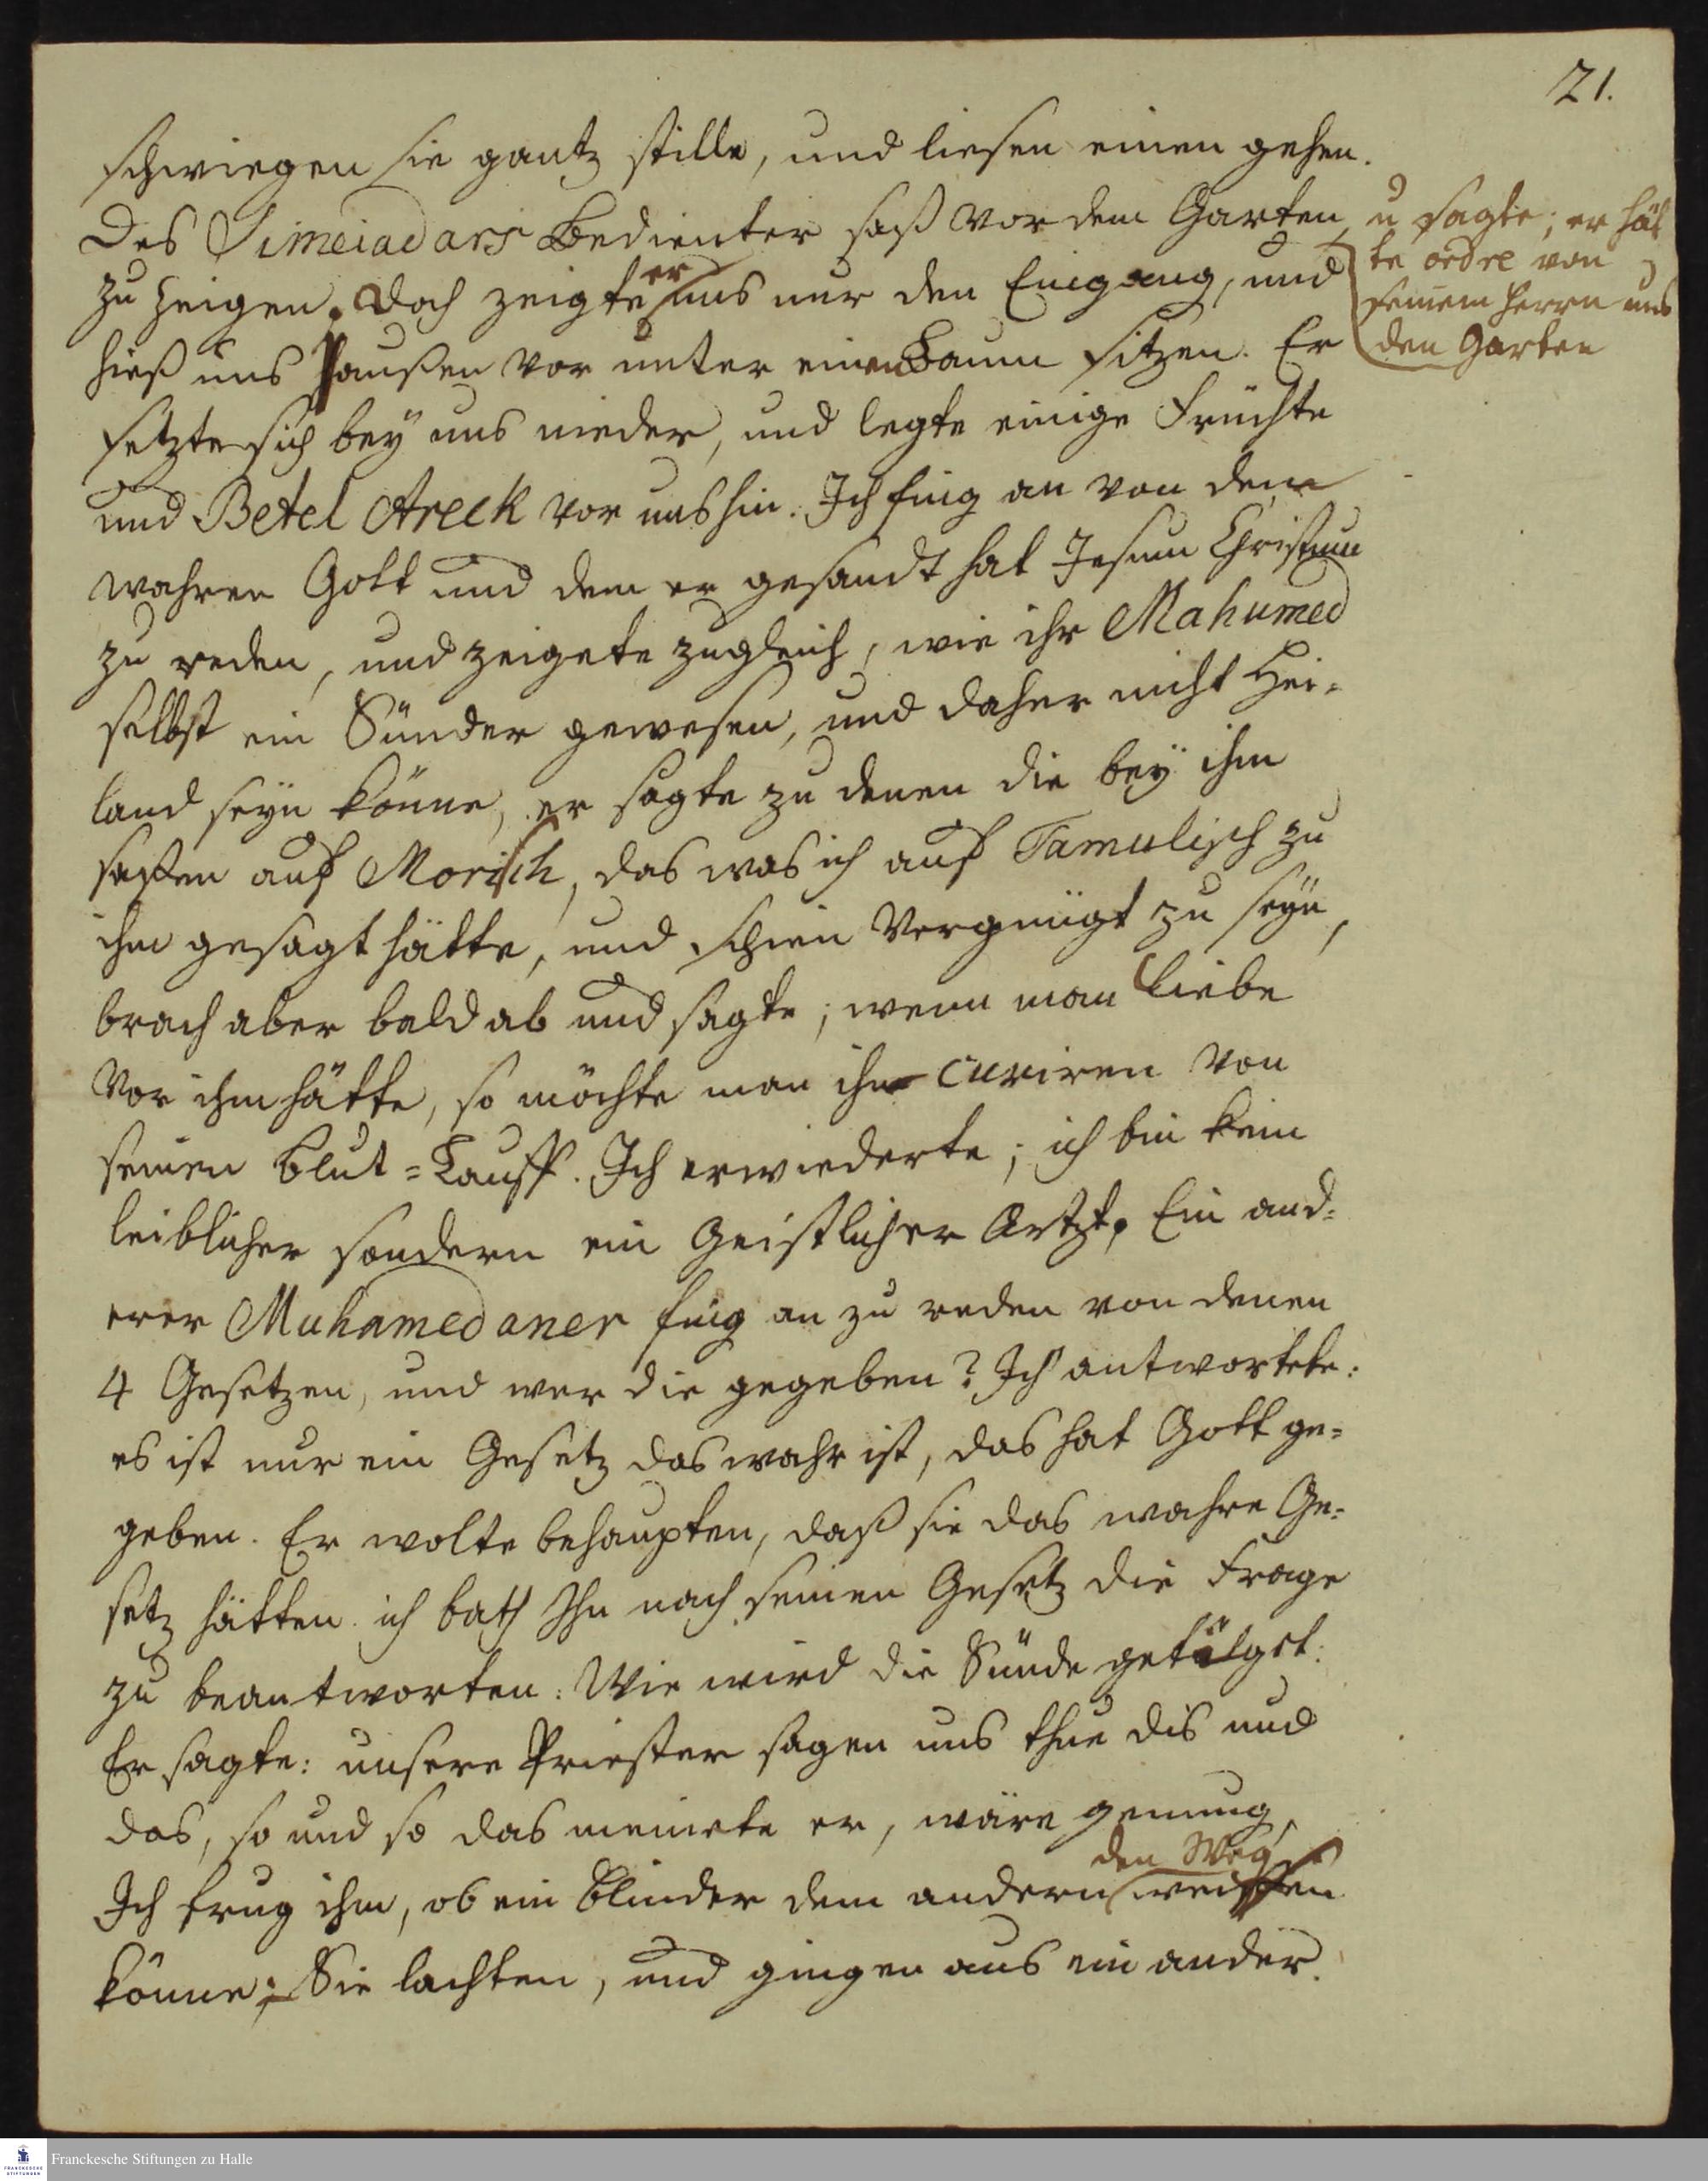 21.
schwiegen sie gantz stille, und liesen einen gehen.
Des Simeiadars Bedienter saß vor dem Garten
u sagte; er hät
te ordre von
seinem Herrn uns
den Garten
zu zeigen. Doch zeigte er uns nur den Eingang, und
hieß uns haußen vor unter einen Baum sitzen. Er
setzte sich bey uns nieder, und legte einige Früchte
und Betel Areck vor uns hin. Ich fing an von dem
wahren Gott und dem er gesandt hat Jesum Christum
zu reden, und zeigete zugleich, wie ihr Mahumed
selbst ein Sünder gewesen, und daher nicht Hei-
land seyn könne, er sagte zu denen die bey ihm
saßen auf Morisch, das was ich auf Tamulisch zu
ihm gesagt hätte, und schien vergnügt zu seyn,
brach aber bald ab und sagte; wenn man Liebe
vor ihm hätte, so möchte man ihn curiren von
seinen Blut-Lauff. Ich erwiederte; ich bin kein
leiblicher sondern ein Geistlicher Artzt. Ein and-
erer Muhamedaner fing an zu reden von denen
4 Gesetzen, und wer die gegeben? Ich antwortete:
es ist nur ein Gesetz das wahr ist, das hat Gott ge-
geben. Er wolte behaupten, daß sie das wahre Ge-
setz hätten. ich bath Ihn nach seinen Gesetz die Frage
zu beantworten: Wie wird die Sünde getilget:
Er sagte: unsere Priester sagen uns thue dis und
das, so und so das meinete er, wäre genung,
Ich frug ihm, ob ein Blinder dem andern den Weg weisen
könne; Sie lachten, und gingen aus ein ander.
Franckesche Stiftungen zu Halle